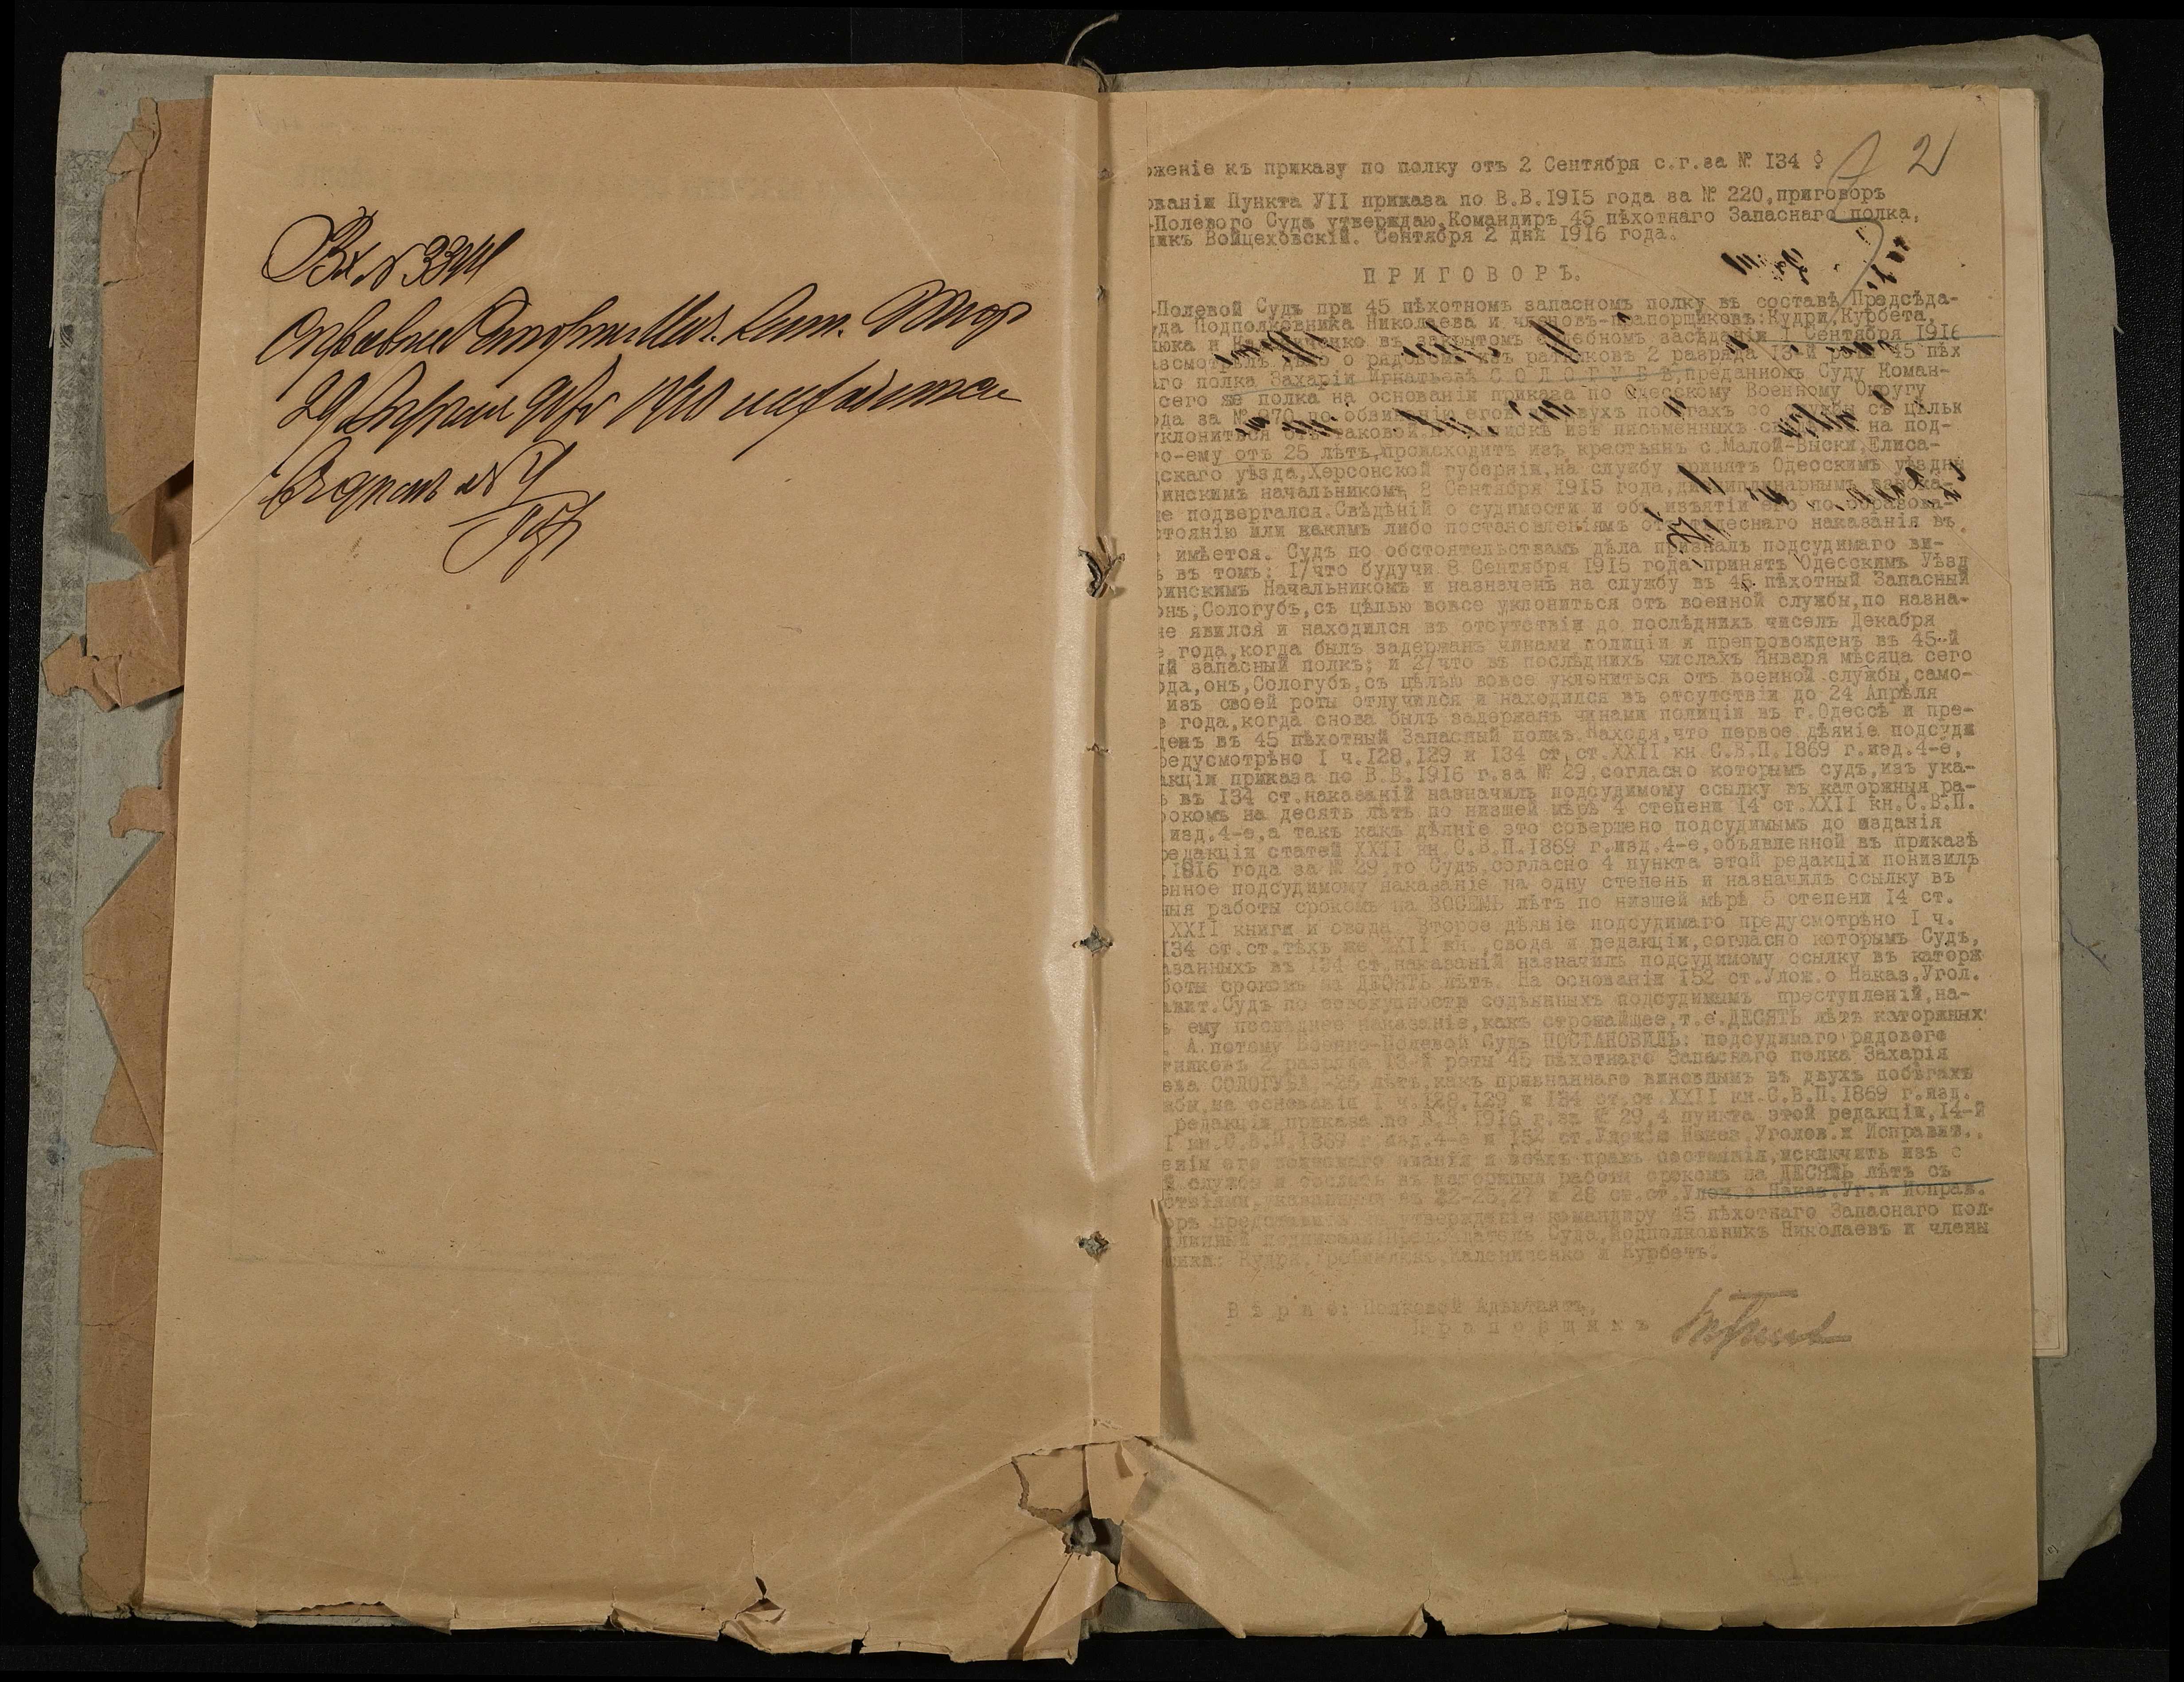 Вх № 3344
2
ожение къ приказу по полку отъ 2 Сентября с.г.за № I34 §
ованіи Пункта УII приказа по В.В.1915 года за № 220,приговоръ
-Полевого Суда утверждаю,Командиръ 45 пѣхотнаго Запаснаго полка,
никъ Войцеховскій. Сентября 2 дня 1916 года.
ПРИГОВОРЪ.
-Полевой Судъ при 45 пѣхотномъ запасномъ полку въ составѣ Предсѣда-
уда Подполковника Николаева и членовъ-прапорщиковъ:Кудри,Курбета,
нюка и въ закрытомъ судебномъ засѣданіи I Сентября 1916
азсмотрѣлъ дѣло о рядовомъ изъ ратниковъ 2 разряда 13-й роты 45 пѣх
аго полка Захаріи Игнатьевѣ СОЛОГУБѢ,преданномъ Суду Коман-
сего же полка на основаніи приказа по Одесскому Военному Округу
ода за № 970 по обвиненію его въ двухъ побѣгахъ со службы съ цѣльк
уклониться отъ таковой. изъ письменныхъ на под-
о-ему отъ 25 лѣтъ,происходитъ изъ крестьянъ с.Малой-Выски,Елиса-
дскаго уѣзда,Херсонской губерніи,на службу принятъ Одесскимъ уѣздн
оинскимъ начальникомъ 8 Сентября 1915 года,дисциплинарнымъ взыска-
не подвергался.Свѣдѣній о судимости и объ изъятіи его по образова-
стоянію или какимъ либо постановленіямъ отъ тѣлеснаго наказанія въ
е имѣется. Судъ по обстоятельствамъ дѣла призналъ подсудимаго ви-
ъ въ томъ: I/что будучи 8 Сентября 1915 года принятъ Одесскимъ Уѣзд
оинскимъ Начальникомъ и назначенъ на службу въ 45 пѣхотный Запасный
онъ,Сологубъ,съ цѣлью вовсе уклониться отъ военной службы,по назна-
не явился и находился въ отсутствіи до послѣднихъ чиселъ Декабря
е года,когда былъ задержанъ чинами полиціи и препровожденъ въ 45-й
ый запасный полкъ; и 2/что въ послѣднихъ числахъ Января мѣсяца сего
ода,онъ,Сологубъ,съ цѣлью вовсе уклониться отъ военной службы,само-
изъ своей роты отлучился и находился въ отсутствіи до 24 Апрѣля
е года,когда снова былъ задержанъ чинами полиціи въ г.Одессѣ и пре-
денъ въ 45 пѣхотный Запасный полкъ.Находя,что первое дѣяніе подсуди
редусмотрѣно I ч.I28,I29 и I34 ст.ст.XXII кн.С.В.П.1869 г.изд.4-е,
акціи приказа по В.В.1916 г.за № 29,согласно которымъ судъ,изъ ука-
ъ въ I34 ст.наказаній назначилъ подсудимому ссылку въ каторжныя ра-
рокомъ на десять лѣтъ по низшей мѣрѣ 4 степени I4 ст.XXII кн.С.В.П.
изд.4-е,а такъ какъ дѣяніе это совершено подсудимымъ до изданія
редакціи статей XXII кн.С.В.П.1869 г.изд.4-е,объявленной въ приказѣ
.1916 года за № 29,то Судъ,согласно 4 пункта этой редакціи понизилъ
енное подсудимому наказаніе на одну степень и назначилъ ссылку въ
ныя работы срокомъ на ВОСЕМЬ лѣтъ по низшей мѣрѣ 5 степени I4 ст.
XXII книги и свода. Второе дѣяніе подсудимаго предусмотрѣно I ч.
I34 ст.ст.тѣхъ же XXII кн.,свода и редакціи,согласно которымъ Судъ,
азанныхъ въ I34 ст.наказаній назначилъ подсудимому ссылку въ каторж
боты срокомъ на ДЕСЯТЬ лѣтъ. На основаніи I52 ст.Улож.о Наказ.Угол.
авит.Судъ по совокупности содѣянныхъ подсудимымъ преступленій,на-
ъ ему послѣднее наказаніе,какъ строжайшее,т.е.ДЕСЯТЬ лѣтъ каторжных
. А потому Военно-Полевой Судъ ПОСТАНОВИЛЪ: подсудимаго рядового
тниковъ 2 разряда 13-й роты 45 пѣхотнаго Запаснаго полка Захарія
ева СОЛОГУБА,-25 лѣтъ,какъ признаннаго виновнымъ въ двухъ побѣгахъ
жбы,на основаніи I ч.I28,I29 и I34 ст.ст.XXII кн.С.В.П.1869 г.изд.
редакціи приказа по В.В.1916 г.за № 29,4 пункта этой редакціи,I4-й
I кн.С.В.П.1869 г.изд.4-е и I52 ст.Улож.о Наказ.Уголов.и Исправит.,
еніи его воинскаго званія и всѣхъ правъ состоянія,исключить изъ с
й службы и сослать въ каторжныя работы срокомъ на ДЕСЯТЬ лѣтъ съ
ствіями,указанными въ 22-25,27 и 28 ст.ст.Улож.о Наказ.Уг.и Исправ.
оръ представить на утвержденіе командиру 45 пѣхотнаго Запаснаго пол-
длинный подписали:Предсѣдатель Суда,Подполковникъ Николаевъ и члены
щики: Кудри, Калениченко и Курбетъ.
Вѣрно: Полковой Адъютантъ,
Прапорщикъ